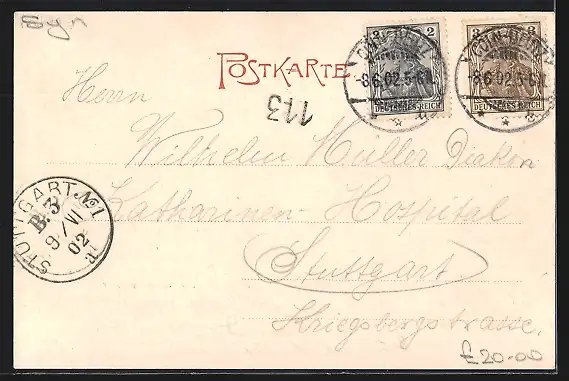 POSTKARTE
2 2
DEUTSCHES REICH
3 3
DEUTSCHES REICH
8.6.02.5-6N.
8.6.02.5-6N.
113
Herrn
Wilhelm Müller Diakon
Katharinen-Hospital
Stuttgart
Kriegsbergstrasse.
STUTTGART No 1
B.3
9/VI
02
R.
£20-00